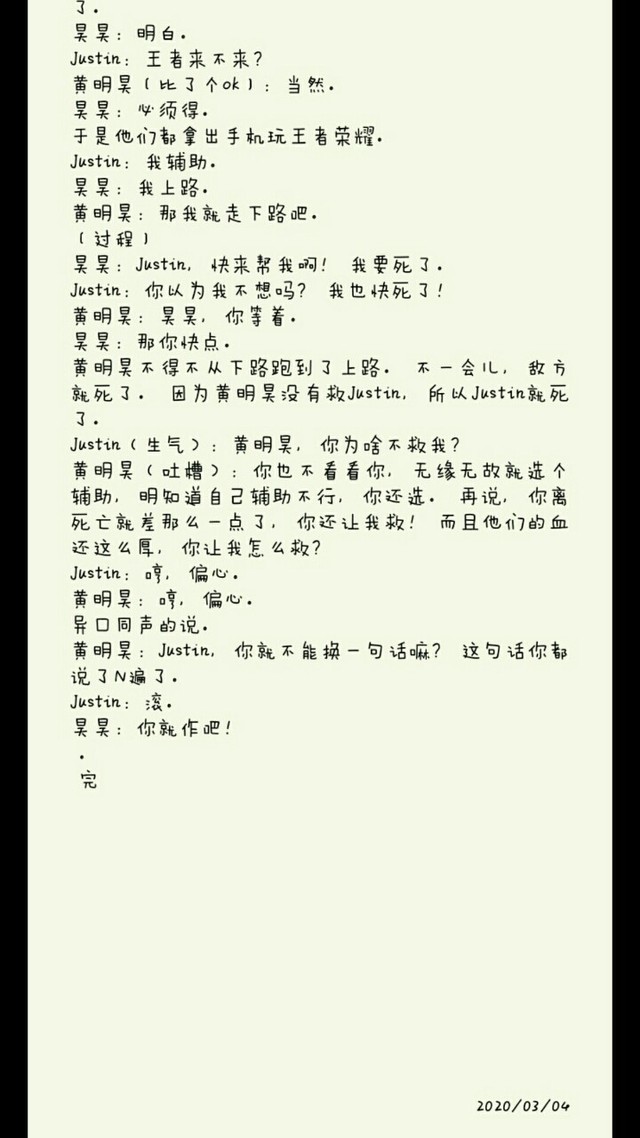 了.
昊昊：明白.
Justin：王者来不来？
黄明昊（比了个ok）：当然.
昊昊：必须得.
于是他们都拿出手机玩王者荣耀.
Justin：我辅助.
昊昊：我上路.
黄明昊：那我就走下路吧.
（过程）
昊昊：Justin，快来帮我啊！ 我要死了.
Justin：你以为我不想吗？ 我也快死了！
黄明昊：昊昊，你等着.
昊昊：那你快点.
黄明昊不得不从下路跑到了上路. 不一会儿，敌方
就死了. 因为黄明昊没有救Justin，所以Justin就死
了.
Justin（生气）：黄明昊，你为啥不救我？
黄明昊（吐槽）：你也不看看你，无缘无故就选个
辅助，明知道自己辅助不行，你还选. 再说，你离
死亡就差那么一点了，你还让我救！ 而且他们的血
还这么厚，你让我怎么救？
Justin：哼，偏心.
黄明昊：哼，偏心.
异口同声的说.
黄明昊：Justin，你就不能换一句话嘛？ 这句话你都
说了N遍了.
Justin：滚.
昊昊：你就作吧！
.
完
2020/03/04